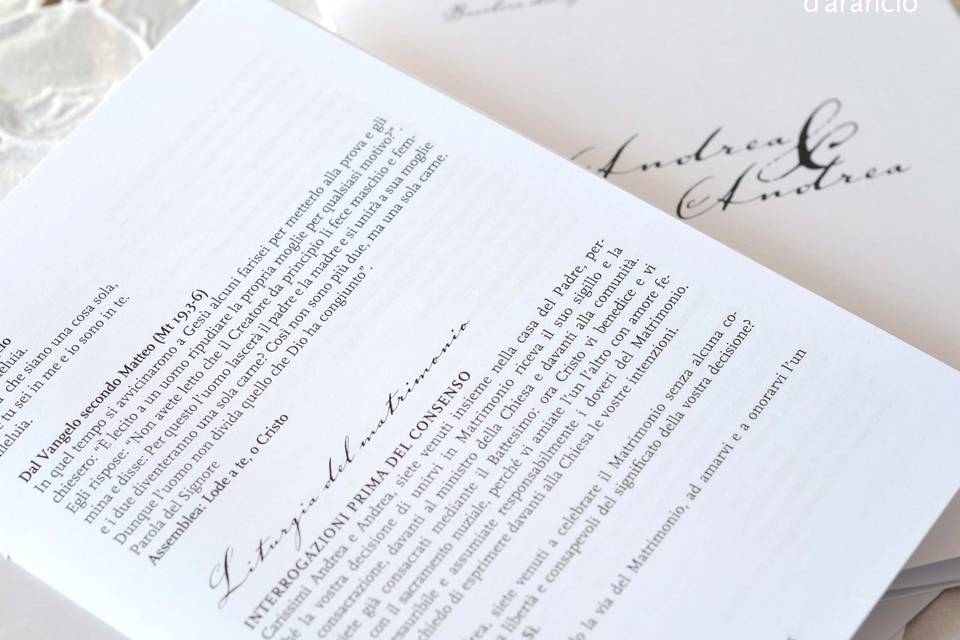 d'arancio
Andrea &
Andrea
che siano una cosa sola,
tu sei in me e io sono in te.
Dal Vangelo secondo Matteo (Mt 19,3-6)
In quel tempo si avvicinarono a Gesù alcuni farisei per metterlo alla prova e gli
chiesero: "È lecito a un uomo ripudiare la propria moglie per qualsiasi motivo?".
Egli rispose: "Non avete letto che il Creatore da principio li fece maschio e fem-
mina e disse: Per questo l'uomo lascerà il padre e la madre e si unirà a sua moglie
e i due diventeranno una sola carne? Così non sono più due, ma una sola carne.
Dunque l'uomo non divida quello che Dio ha congiunto".
Parola del Signore
Assemblea: Lode a te, o Cristo
Liturgia del matrimonio
INTERROGAZIONI PRIMA DEL CONSENSO
Carissimi Andrea e Andrea, siete venuti insieme nella casa del Padre, per-
ché la vostra decisione di unirvi in Matrimonio riceva il suo sigillo e la
consacrazione, davanti al ministro della Chiesa e davanti alla comunità.
siete già consacrati mediante il Battesimo: ora Cristo vi benedice e vi
con il sacramento nuziale, perché vi amiate l'un l'altro con amore fe-
e assumiate responsabilmente i doveri del Matrimonio.
chiedo di esprimere davanti alla Chiesa le vostre intenzioni.
siete venuti a celebrare il Matrimonio senza alcuna co-
libertà e consapevoli del significato della vostra decisione?
Sì.
la via del Matrimonio, ad amarvi e a onorarvi l'un